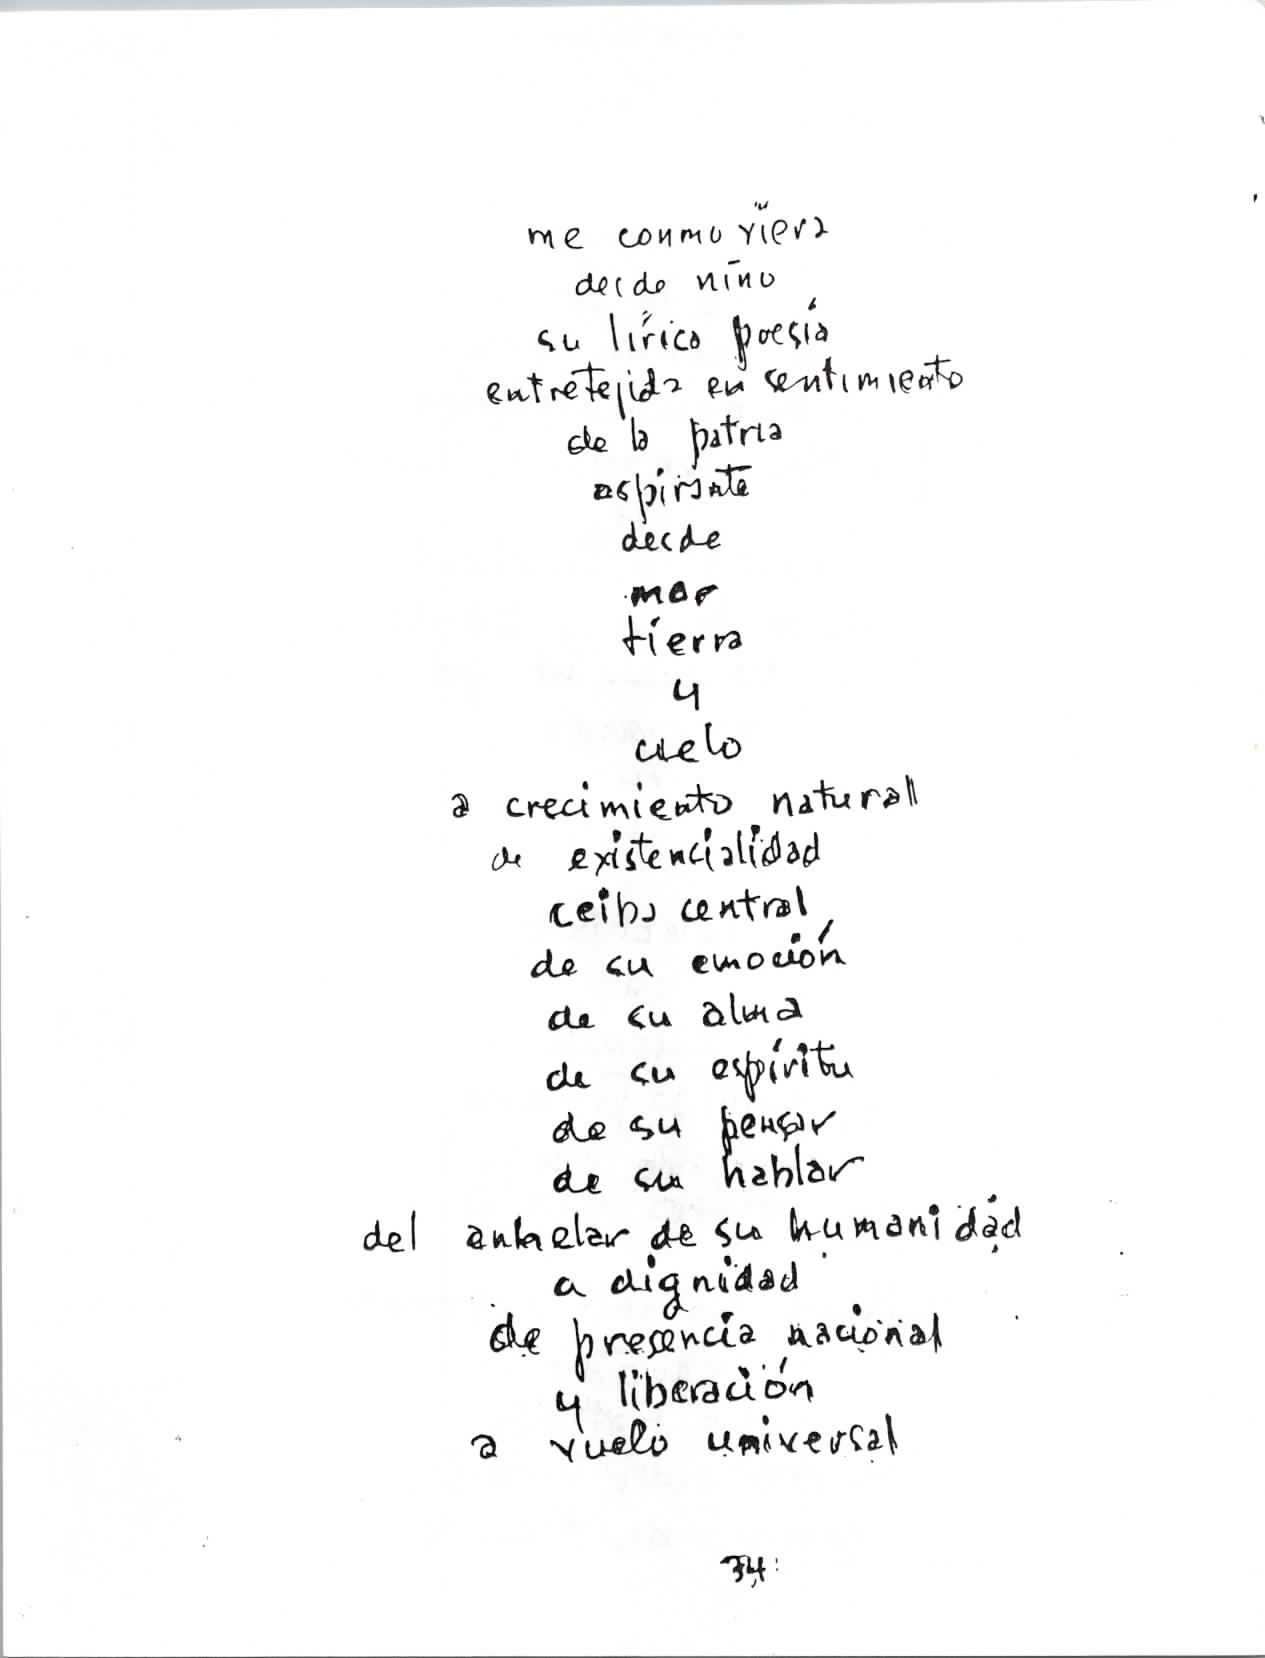 me conmoviera
desde niño
su lírica poesía
entretejida en sentimiento
de la patria
aspirante
desde
mar
tierra
y
cielo
a crecimiento natural
de existencialidad
ceiba central
de su emoción
de su alma
de su espíritu
de su pensar
de su hablar
del anhelar de su humanidad
a dignidad
de presencia nacional
y liberación
a vuelo universal
34